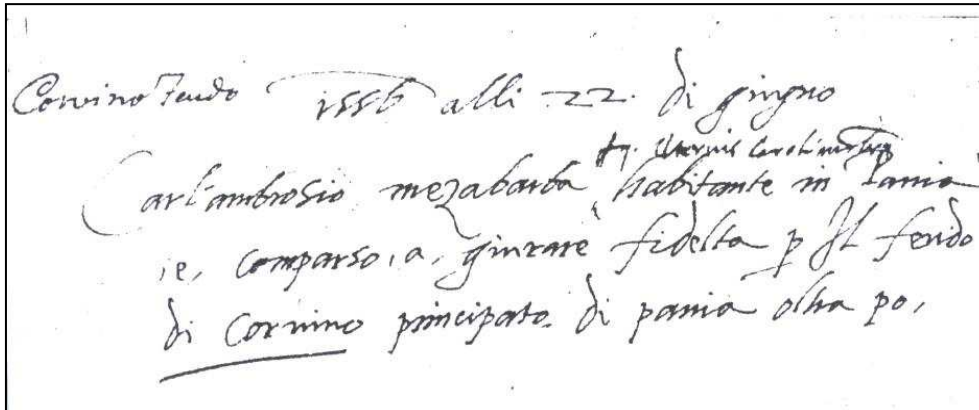 Corvino Feudo 1556 alli 22 di giugno
Carl'ambrosio mezabarba habitante in Pavia
,e, comparso ,a, giurare fidelta p Il feudo
di Corvino principato di pavia oltra po,